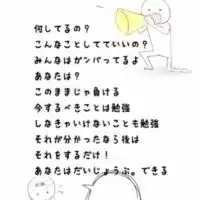 何してるの？
こんなことしてていいの？
みんなはガンバってるよ
あなたは？
このままじゃ負ける
今するべきことは勉強
しなきゃいけないことも勉強
それが分かったなら後は
それをするだけ！
あなたはだいじょうぶ。できる